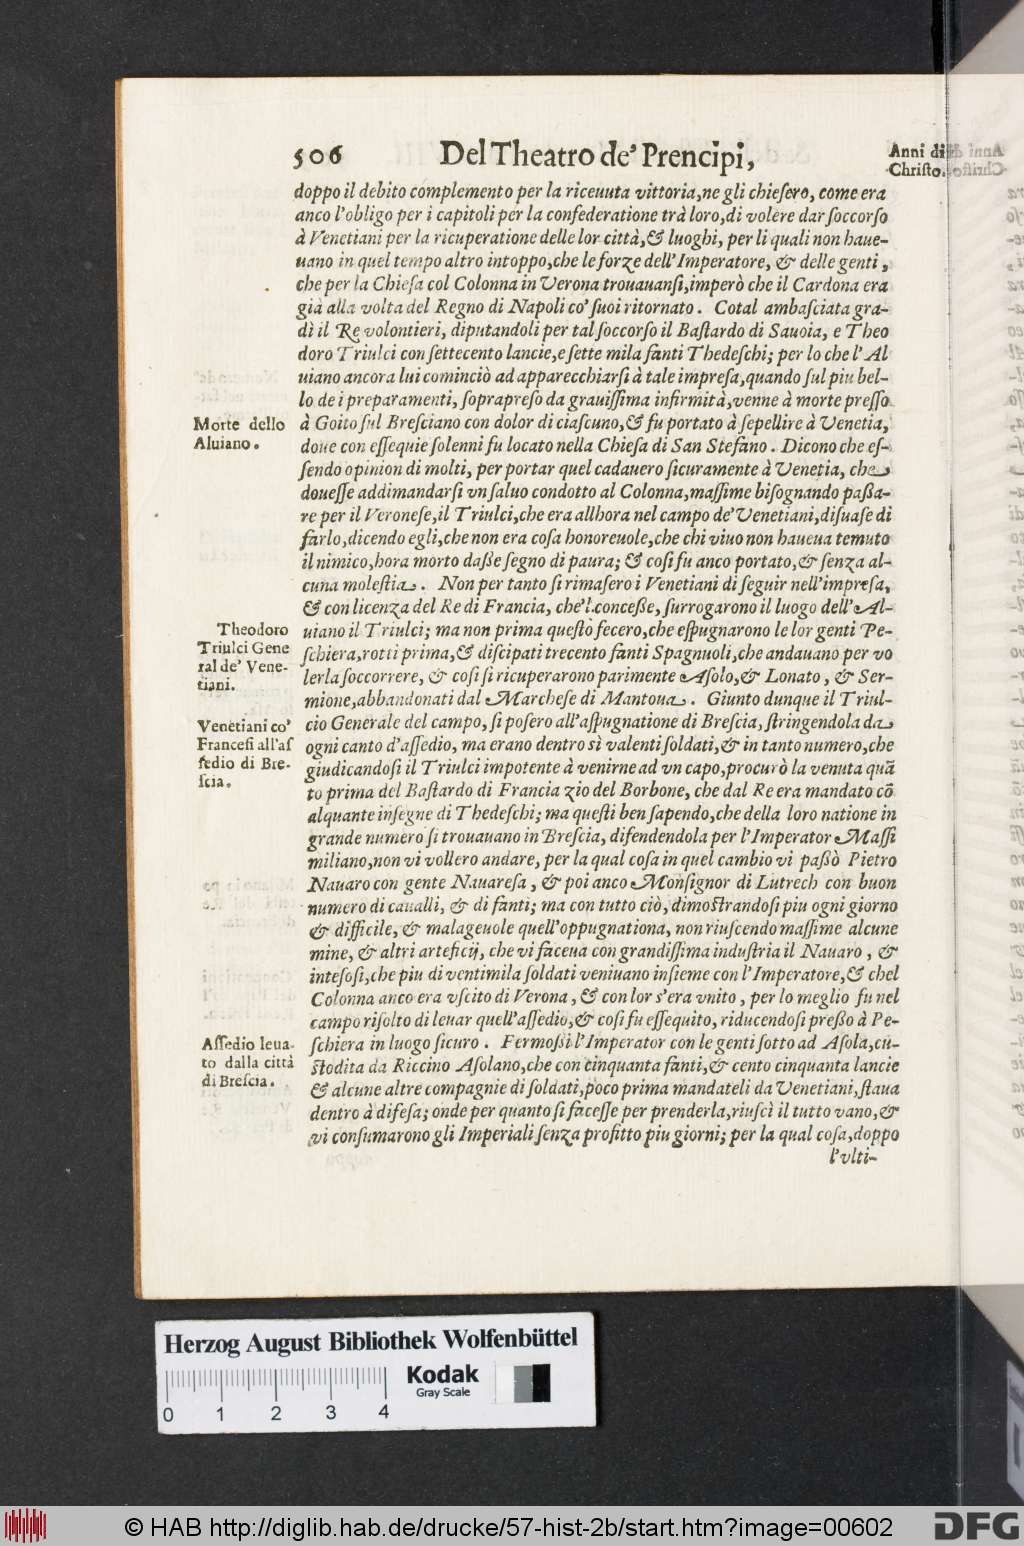 506 Del Theatro de' Prencipi, Anni di
Christo.
doppo il debito complemento per la riceuuta vittoria, ne gli chiesero, come era
anco l'obligo per i capitoli per la confederatione trà loro, di volere dar soccorso
à Venetiani per la ricuperatione delle lor città, & luoghi, per li quali non haue-
uano in quel tempo altro intoppo, che le forze dell'Imperatore, & delle genti,
che per la Chiesa col Colonna in Verona trouauansi, imperò che il Cardona era
già alla volta del Regno di Napoli co' suoi ritornato. Cotal ambasciata gra-
dì il Re volontieri, diputandoli per tal soccorso il Bastardo di Sauoia, e Theo
doro Triulci con settecento lancie, e sette mila fanti Thedeschi; per lo che l'Al
uiano ancora lui cominciò ad apparecchiarsi à tale impresa, quando sul piu bel-
lo de i preparamenti, soprapreso da grauissima infirmità, venne à morte presso
à Goito sul Bresciano con dolor di ciascuno, & fu portato à sepellire à Venetia,
doue con essequie solenni fu locato nella Chiesa di San Stefano. Dicono che es-
sendo opinion di molti, per portar quel cadauero sicuramente à Venetia, che
douesse addimandarsi vn saluo condotto al Colonna, massime bisognando passa-
re per il Veronese, il Triulci, che era allhora nel campo de' Venetiani, disuase di
farlo, dicendo egli, che non era cosa honoreuole, che chi viuo non haueua temuto
il nimico, hora morto dasse segno di paura; & cosi fu anco portato, & senza al-
cuna molestia. Non per tanto si rimasero i Venetiani di seguir nell'impresa,
& con licenza del Re di Francia, che'l concesse, surrogarono il luogo dell'Al-
uiano il Triulci; ma non prima questo fecero, che espugnarono le lor genti Pe-
schiera, rotti prima, & discipati trecento fanti Spagnuoli, che andauano per vo
lerla soccorrere, & cosi si ricuperarono parimente Asolo, & Lonato, & Ser-
mione, abbandonati dal Marchese di Mantoua. Giunto dunque il Triul-
cio Generale del campo, si posero all'aspugnatione di Brescia, stringendola da
ogni canto d'assedio, ma erano dentro sì valenti soldati, & in tanto numero, che
giudicandosi il Triulci impotente à venirne ad vn capo, procurò la venuta quã
to prima del Bastardo di Francia zio del Borbone, che dal Re era mandato cõ
alquante insegne di Thedeschi; ma questi ben sapendo, che della loro natione in
grande numero si trouauano in Brescia, difendendola per l'Imperator Massi
miliano, non vi vollero andare, per la qual cosa in quel cambio vi passò Pietro
Nauaro con gente Nauaresa, & poi anco Monsignor di Lutrech con buon
numero di caualli, & di fanti; ma con tutto ciò, dimostrandosi piu ogni giorno
& difficile, & malageuole quell'oppugnationa, non riuscendo massime alcune
mine, & altri arteficij, che vi faceua con grandissima industria il Nauaro, &
intesosi, che piu di ventimila soldati veniuano insieme con l'Imperatore, & chel
Colonna anco era vscito di Verona, & con lor s'era vnito, per lo meglio fu nel
campo risolto di leuar quell'assedio, & cosi fu essequito, riducendosi presso à Pe-
schiera in luogo sicuro. Fermossi l'Imperator con le genti sotto ad Asola, cu-
stodita da Riccino Asolano, che con cinquanta fanti, & cento cinquanta lancie
& alcune altre compagnie di soldati, poco prima mandateli da Venetiani, staua
dentro à difesa; onde per quanto si facesse per prenderla, riuscì il tutto vano, &
vi consumarono gli Imperiali senza profitto piu giorni; per la qual cosa, doppo
l'vlti-
Morte dello
Aluiano.
Theodoro
Triulci Gene
ral de' Vene-
tiani.
Venetiani co'
Francesi all'as
sedio di Bre-
scia.
Assedio leua-
to dalla città
di Brescia.
Herzog August Bibliothek Wolfenbüttel
Kodak
Gray Scale
0 1 2 3 4
© HAB http://diglib.hab.de/drucke/57-hist-2b/start.htm?image=00602
DFG